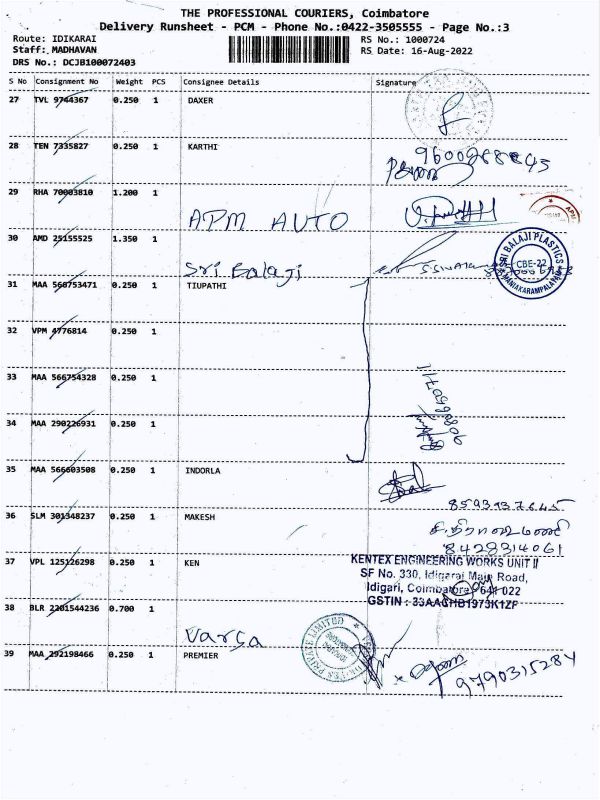 THE PROFESSIONAL COURIERS, Coimbatore
Delivery Runsheet - PCM - Phone No.:0422-3505555 - Page No.:3
Route: IDIKARAI
RS No.: 1000724
Staff: MADHAVAN
RS Date: 16-Aug-2022
DRS No.: DCJB100072403
S No Consignment No Weight PCS Consignee Details Signature
27 TVL 9744367 0.250 1 DAXER
28 TEN 7335827 0.250 1 KARTHI
29 RHA 70003810 1.200 1
APM AUTO
30 AMD 25155525 1.350 1
Sri Balaji
SRI BALAJI PLASTICS
CBE-22
MANIAKARAMPALAYAM
31 MAA 566753471 0.250 1 TIUPATHI
32 VPM 4776814 0.250 1
33 MAA 566754328 0.250 1
34 MAA 290226931 0.250 1
35 MAA 566603508 0.250 1 INDORLA
8593937645
36 SLM 301348237 0.250 1 MAKESH
8428314061
37 VPL 125126298 0.250 1 KEN
KENTEX ENGINEERING WORKS UNIT II
SF No. 330, Idigarai Main Road,
Idigari, Coimbatore - 641 022
GSTIN : 33AAGHB1973K1ZF
38 BLR 2201544236 0.700 1
Varsa
39 MAA 292198466 0.250 1 PREMIER
9790315284